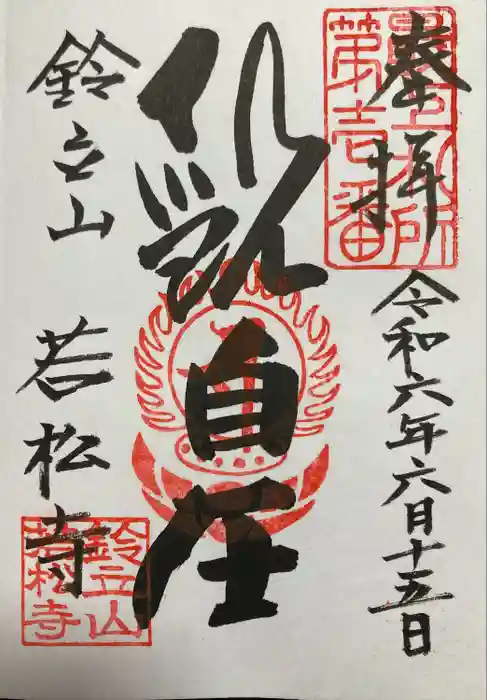 奉拝
最上札所
第壱番
令和六年六月十五日
自在
鈴立山 若松寺
鈴立山
若松寺